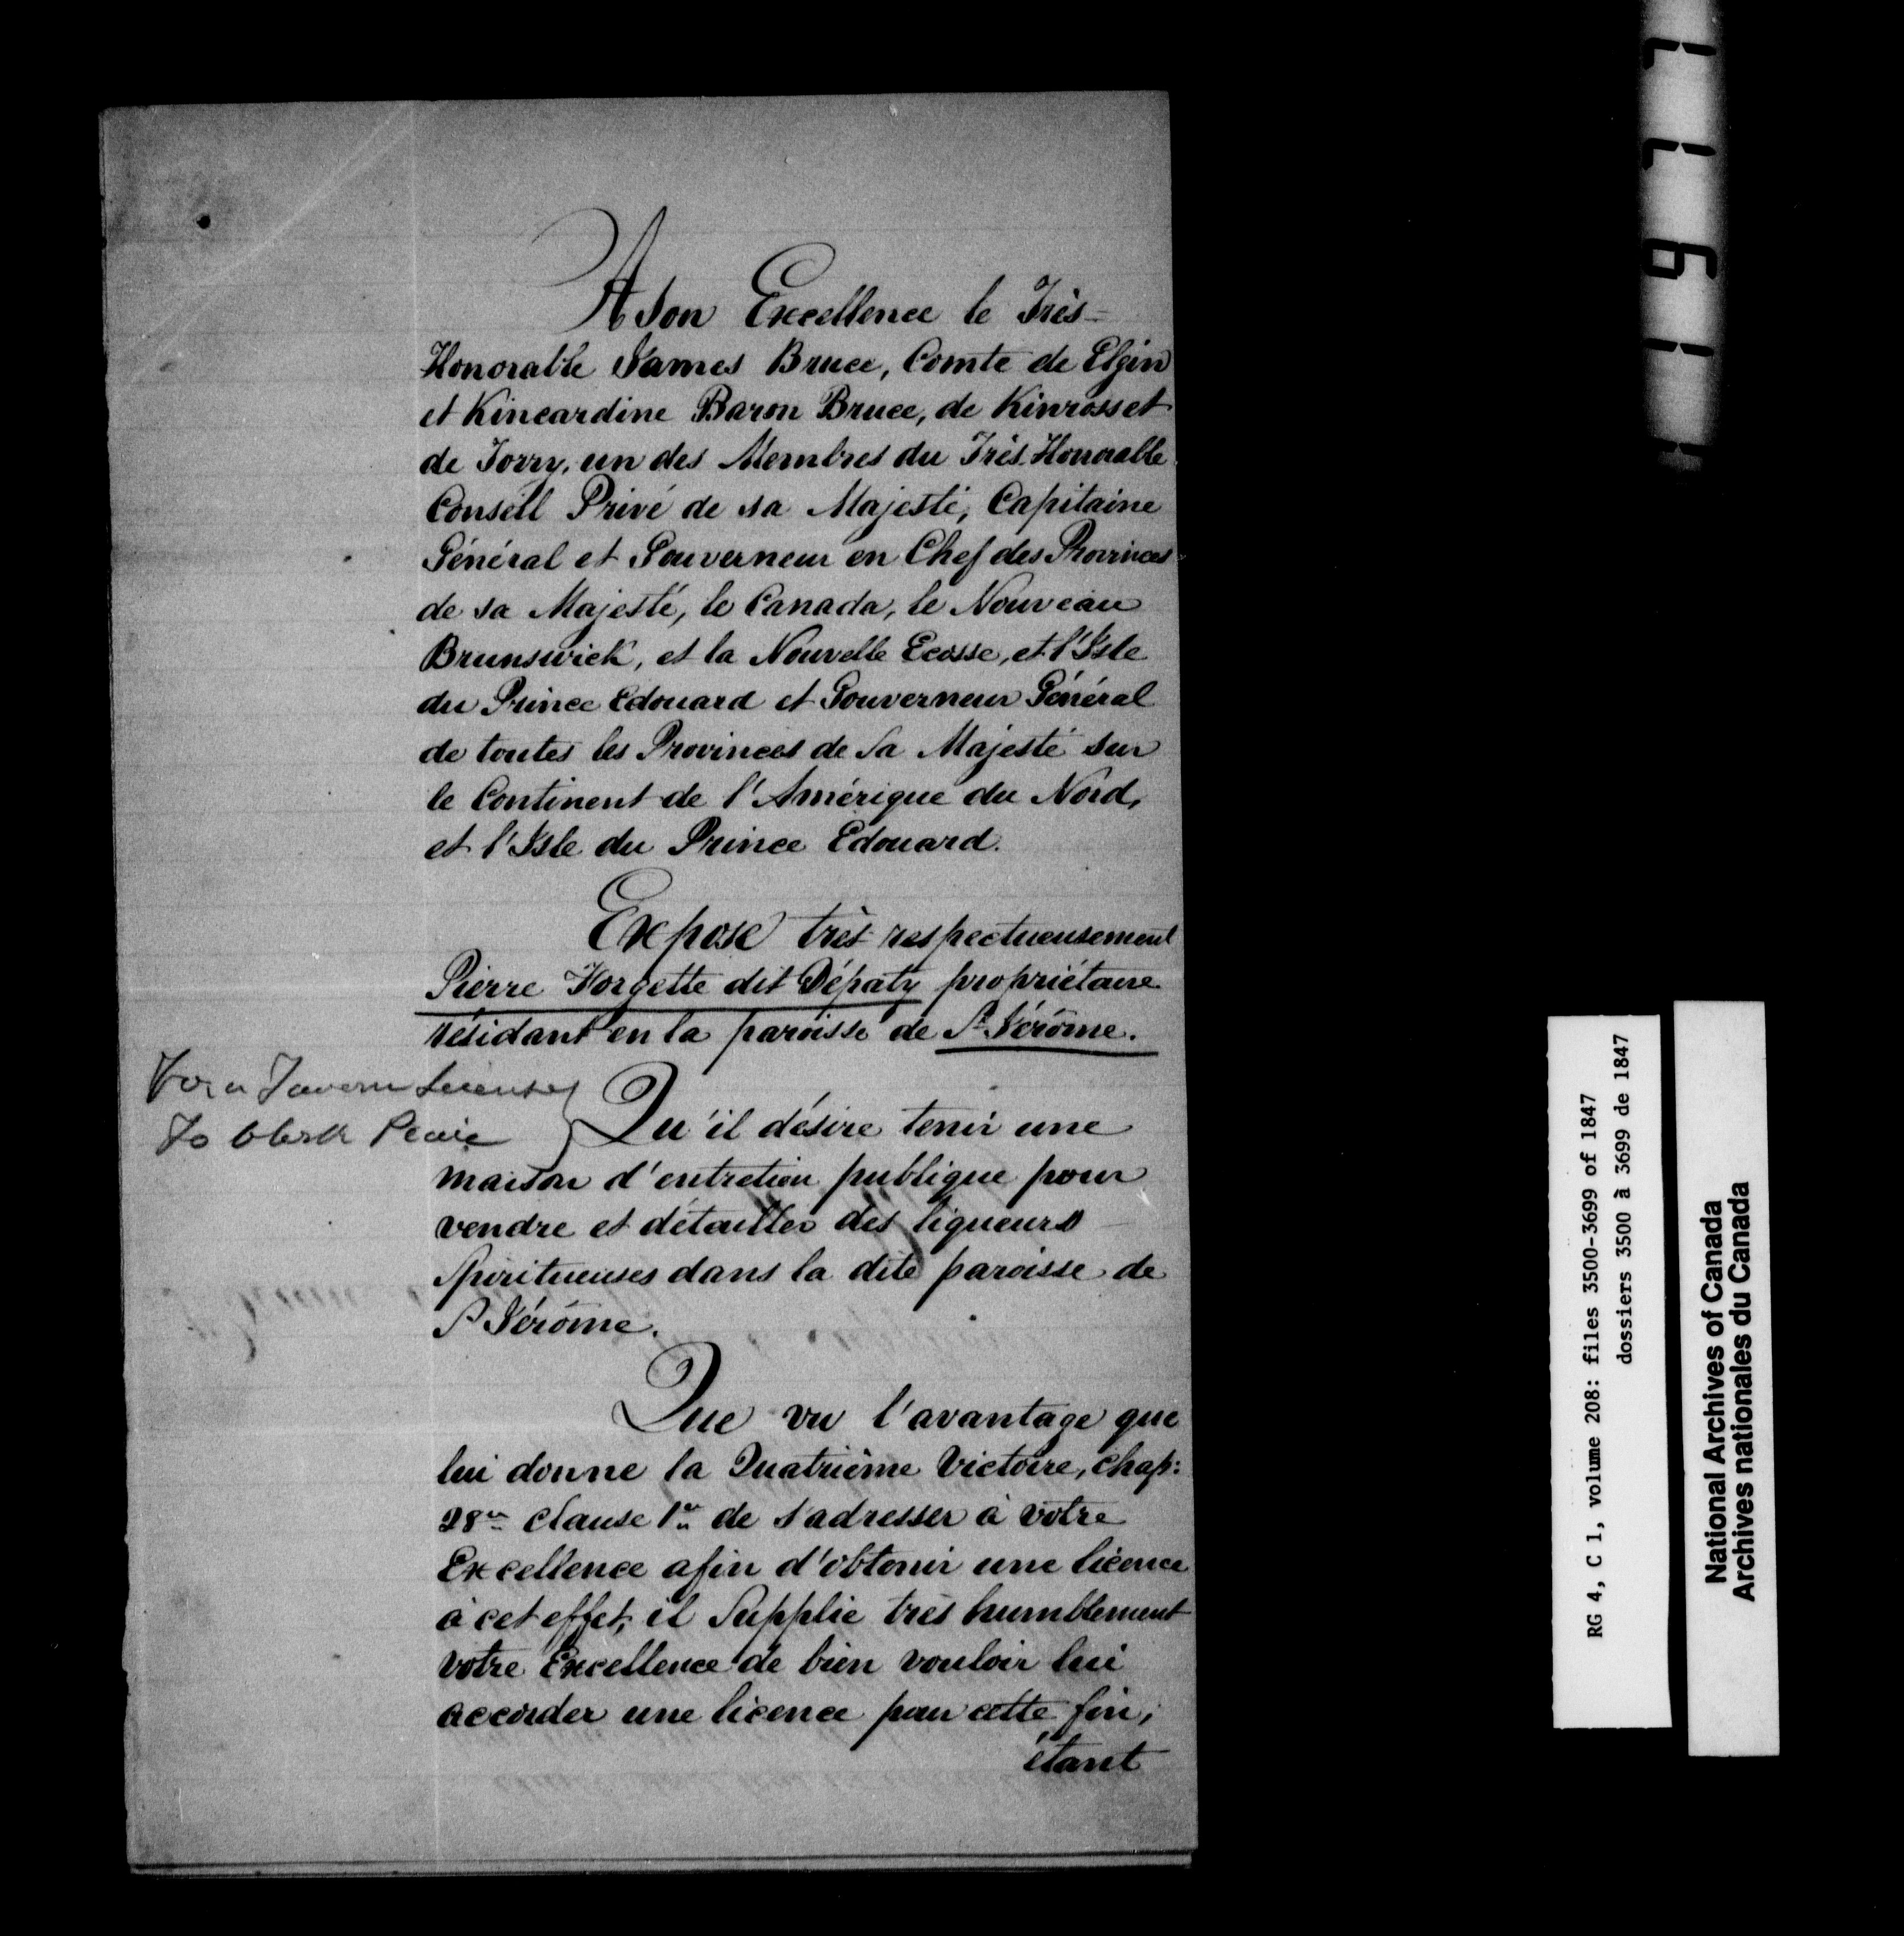 A Son Excellence le Très-
Honorable James Bruce, Comte de Elgin
et Kincardine Baron Bruce, de Kinross et
de Torry, un des Membres du Très-Honorable
Conseil Privé de sa Majesté, Capitaine
Général et Gouverneur en Chef des Provinces
de sa Majesté, le Canada, le Nouveau
Brunswick, et la Nouvelle Ecosse, et l'Isle
du Prince Edouard et Gouverneur Général
de toutes les Provinces de Sa Majesté sur
le Continent de l'Amérique du Nord,
et l'Isle du Prince Edouard.
Expose très-respectueusement
Pierre Forgette dit Dépaty propriétaire
résidant en la paroisse de St Jérôme.
For a Tavern License
To Clerk Peace
Qu'il désire tenir une
maison d'entretien publique pour
vendre et détailler des liqueurs
Spiritueuses dans la dite paroisse de
St Jérôme.
Que vu l'avantage que
lui donne la Quatrième Victoire, chap:
28e clause 1e de s'adresser à votre
Excellence afin d'obtenir une licence
à cet effet, il Supplie très humblement
votre Excellence de bien vouloir lui
accorder une licence pour cette fin;
étant
11977
RG 4, C 1, volume 208: files 3500-3699 of 1847
dossiers 3500 à 3699 de 1847
National Archives of Canada
Archives nationales du Canada